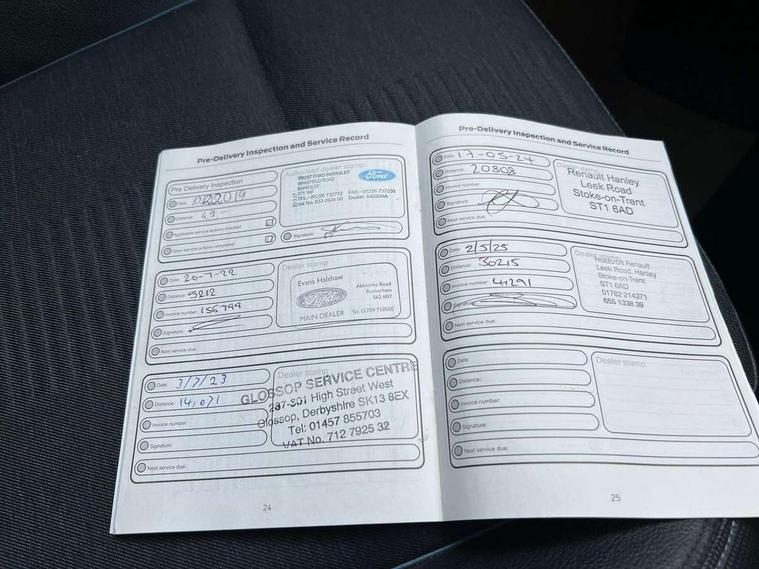 Pre-Delivery Inspection and Service Record
Pre Delivery Inspection
Date:
Distance: 49
Applicable service actions checked
Open service actions completed
Authorised dealer stamp:
TRUST FORD BARNSLEY
WAKEFIELD ROAD
BARNSLEY
TEL - 01226 732732 FAX - 01226
Ford
Signature:
Date: 20-7-22
Distance: 5212
Invoice number: 156799
Signature:
Next service due:
Dealer stamp
Evans Halshaw
Ford
MAIN DEALER
Rotherham
Tel 01709 710500
Date: 3/7/23
Distance: 14,071
Invoice number:
Signature:
Next service due:
Dealer stamp
GLOSSOP SERVICE CENTRE
High Street West
Glossop, Derbyshire SK13 8EX
Tel: 01457 855703
VAT No. 712 7925 32
24
Pre-Delivery Inspection and Service Record
Date: 17-05-24
Distance: 20808
Invoice number:
Signature:
Next service due:
Dealer stamp
Renault Hanley
Leek Road
Stoke-on-Trent
ST1 6AD
Date: 2/5/25
Distance: 30215
Invoice number: 41291
Next service due:
Dealer stamp
Holdcroft Renault
Leek Road, Hanley
Stoke-on-Trent
ST1 6AD
01782 214371
655 1338 39
Date:
Distance:
Invoice number:
Signature:
Next service due:
Dealer stamp
25